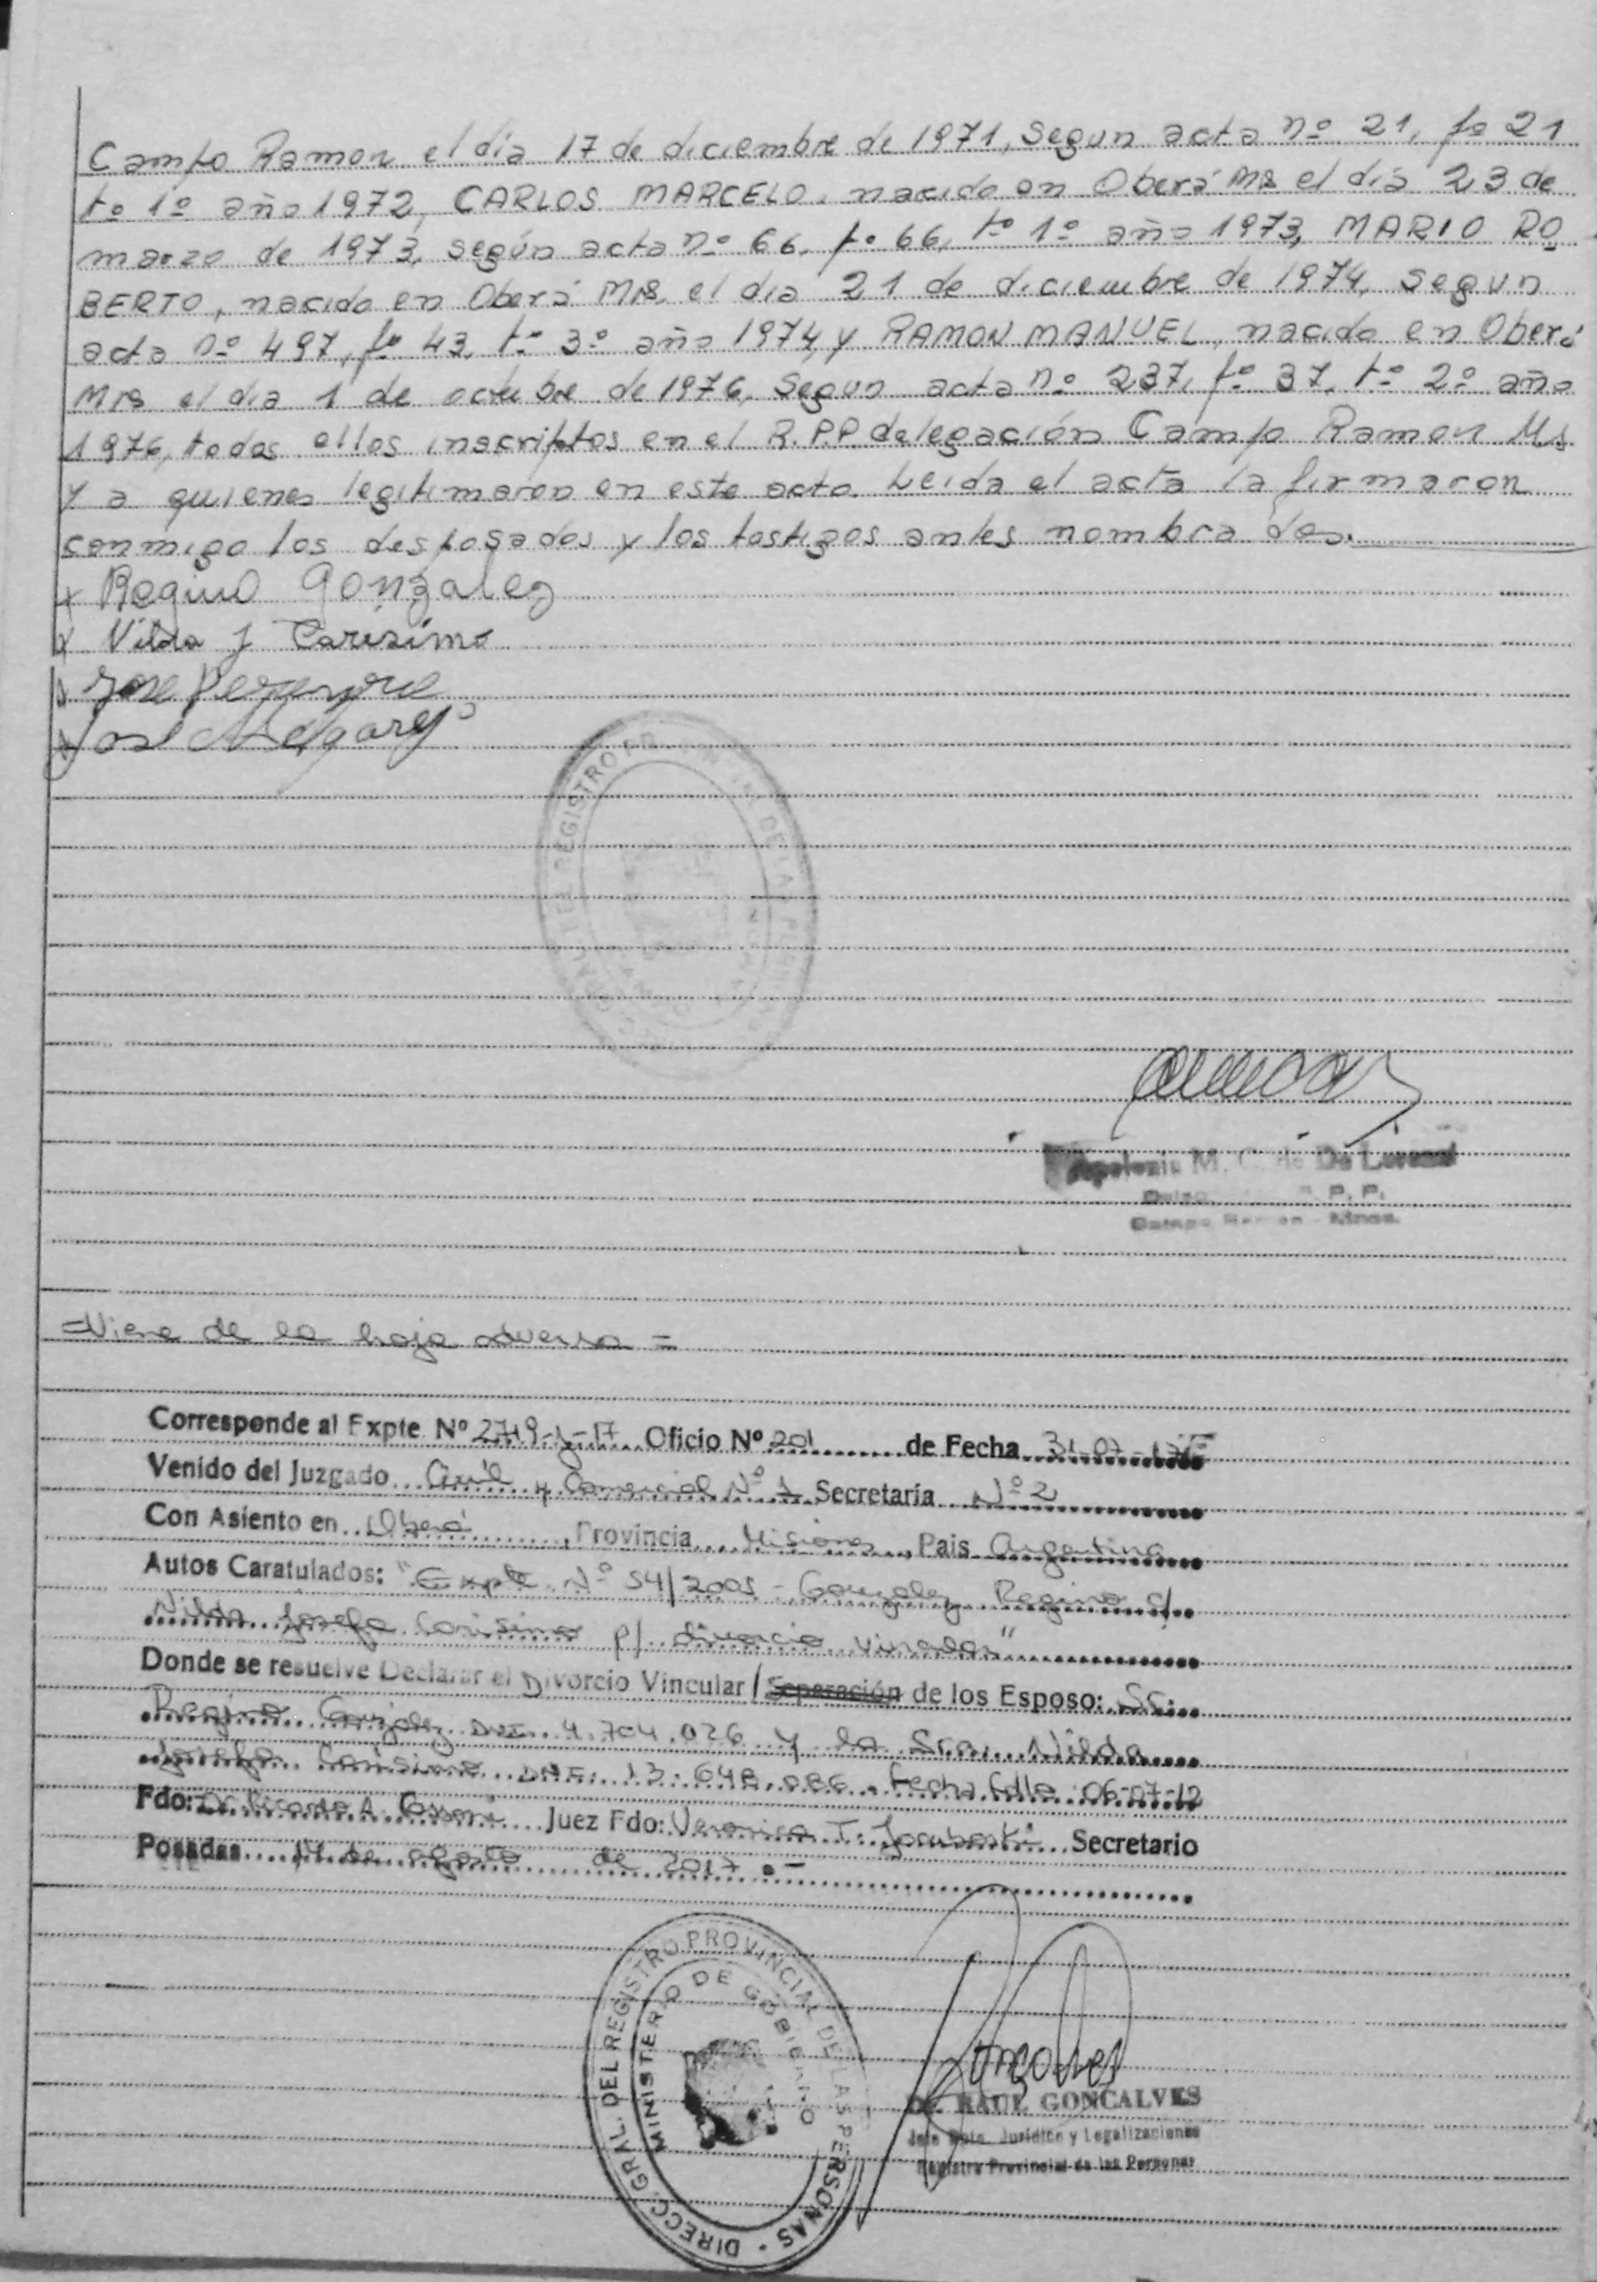 Campo Ramon el día 17 de diciembre de 1971, segun acta nº 21, fº 21
tº 1º año 1972, CARLOS MARCELO, nacido en Oberá Mns el día 23 de
marzo de 1973, según acta nº 66, fº 66, tº 1º año 1973, MARIO RO
BERTO, nacido en Oberá Mns el día 21 de diciembre de 1974, segun
acta nº 497, fº 43, tº 3º año 1974 y RAMON MANUEL, nacido en Oberá
Mns el día 1 de octubre de 1976, segun acta nº 237, fº 37, tº 2º año
1976, todos ellos inscriptos en el R.P.P. delegación Campo Ramon Ms
y a quienes legitimaron en este acto. Leida el acta la firmaron
conmigo los desposados y los testigos antes nombrados.
x Regino Gonzalez
x Nilda J Carisimo
x Jose
x Jose Melgarejo
DIRECC. GRAL. DEL REGISTRO PROVINCIAL DE LAS PERSONAS
Apolonia M. C. de De Lorenzi
R. P. P.
Campo Ramon - Mnes.
=Viene de la hoja adversa =
Corresponde al Expte Nº 2719-J-17 Oficio Nº 201 de Fecha 31-07-17
Venido del Juzgado Civil y Comercial Nº 1 Secretaría Nº 2
Con Asiento en Oberá, Provincia Misiones, Pais Argentina
Autos Caratulados: "Expte Nº 54/2005 - Gonzalez Regino c/
Nilda Josefa Carisimo p/ divorcio vincular"
Donde se resuelve Declarar el Divorcio Vincular / Separación de los Esposo: Sr.
Regino Gonzalez DNI 4.704.026 y la Sra. Nilda
Josefa Carisimo DNI: 13.648.086. Fecha fallo 06-07-12
Fdo: Dr. Ricardo A. Juez Fdo: Veronica T. Secretario
Posadas 14 de agosto de 2017.-
DIRECC. GRAL. DEL REGISTRO PROVINCIAL DE LAS PERSONAS
MINISTERIO DE GOBIERNO
Dr. RAUL GONCALVES
Jefe Dpto. Jurídico y Legalizaciones
Registro Provincial de las Personas